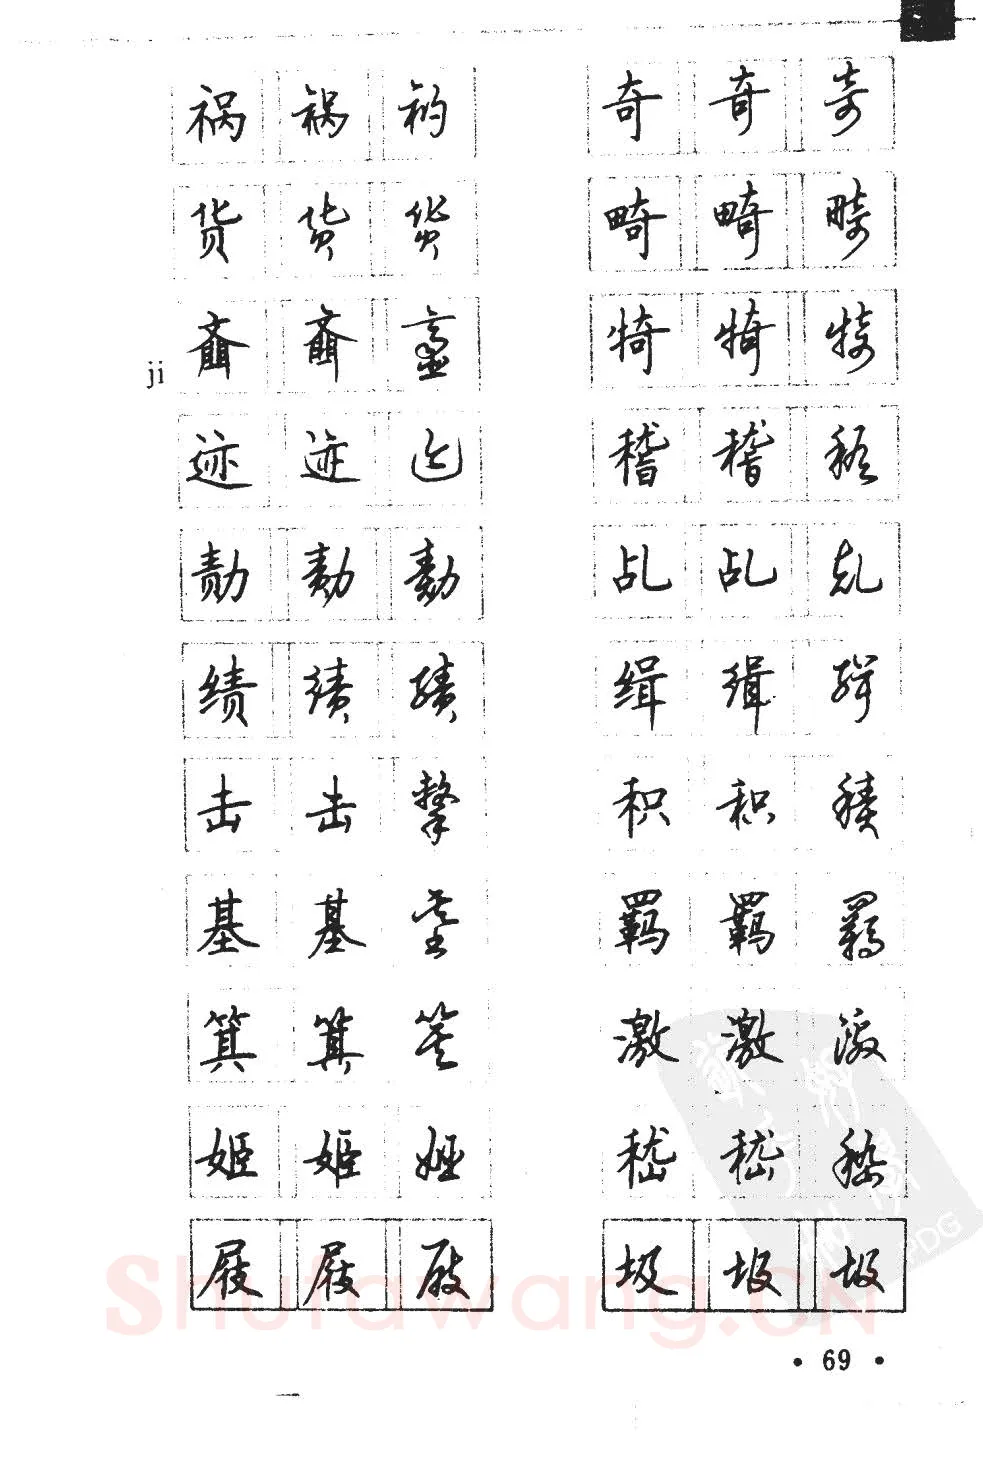 祸 祸 祸
货 货 货
ji
齑 齑 齑
迹 迹 迹
勣 勣 勣
绩 绩 绩
击 击 擊
基 基 基
箕 箕 箕
姬 姬 姬
屐 屐 屐
奇 奇 奇
畸 畸 畸
犄 犄 犄
稽 稽 稽
乩 乩 乩
缉 缉 缉
积 积 積
羁 羁 羁
激 激 激
嵇 嵇 嵇
圾 圾 圾
Shufawang.CN
PDG
• 69 •